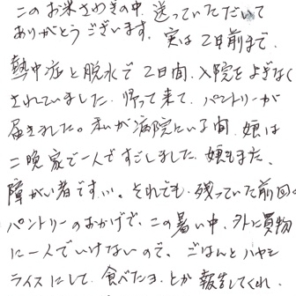 このお米さわぎの中、送っていただいて
ありがとうございます。実は2日前まで、
熱中症と脱水で2日間、入院をよぎなく
されていました。帰って来て、パントリーが
届きました。私が病院にいる間、娘は
二晩家で一人ですごしました。娘もまた、
障がい者です。それでも、残っていた前回の
パントリーのおかげで、この暑い中、外に買物
に一人でいけないので、ごはんとハヤシ
ライスにして、食べたヨ、とか報告してくれ、